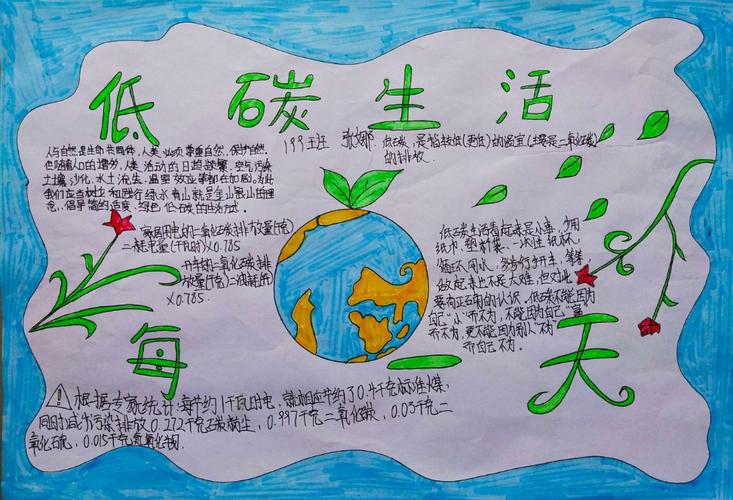 低碳生活
199班 张娜
低碳,是指较低(更低)的温室(主要是二氧化碳)
的排放.
人与自然是生命共同体,人类必须尊重自然,保护自然.
但随着人口的增长,人类活动的日趋频繁,空气污染
土壤沙化,水土流失,温室效应等都在加剧,为此
我们应当树立和践行绿水青山就是金山银山的理
念,倡导简约适度、绿色低碳的生活方式.
家居用电的二氧化碳排放量(千克)
=耗电量(千瓦时)×0.785
开车的二氧化碳排
放量(千克)=油耗(升)
×0.785.
低碳生活看起来是小事,少用
纸巾,塑料袋,一次性纸杯,
循环用水,多步行少开车,等等,
做起来也不是太难,但对此
要有正确的认识,低碳不能因为
自己“小”而不为,不能因为自己“富”
而不为,更不能因为别人“不为”
而自己不为.
每一天
根据专家统计:每节约1千瓦时电,就相应节约了0.4千克标准煤,
同时减少污染排放0.272千克碳粉尘,0.997千克二氧化碳,0.03千克二
氧化硫,0.015千克氮氧化物.